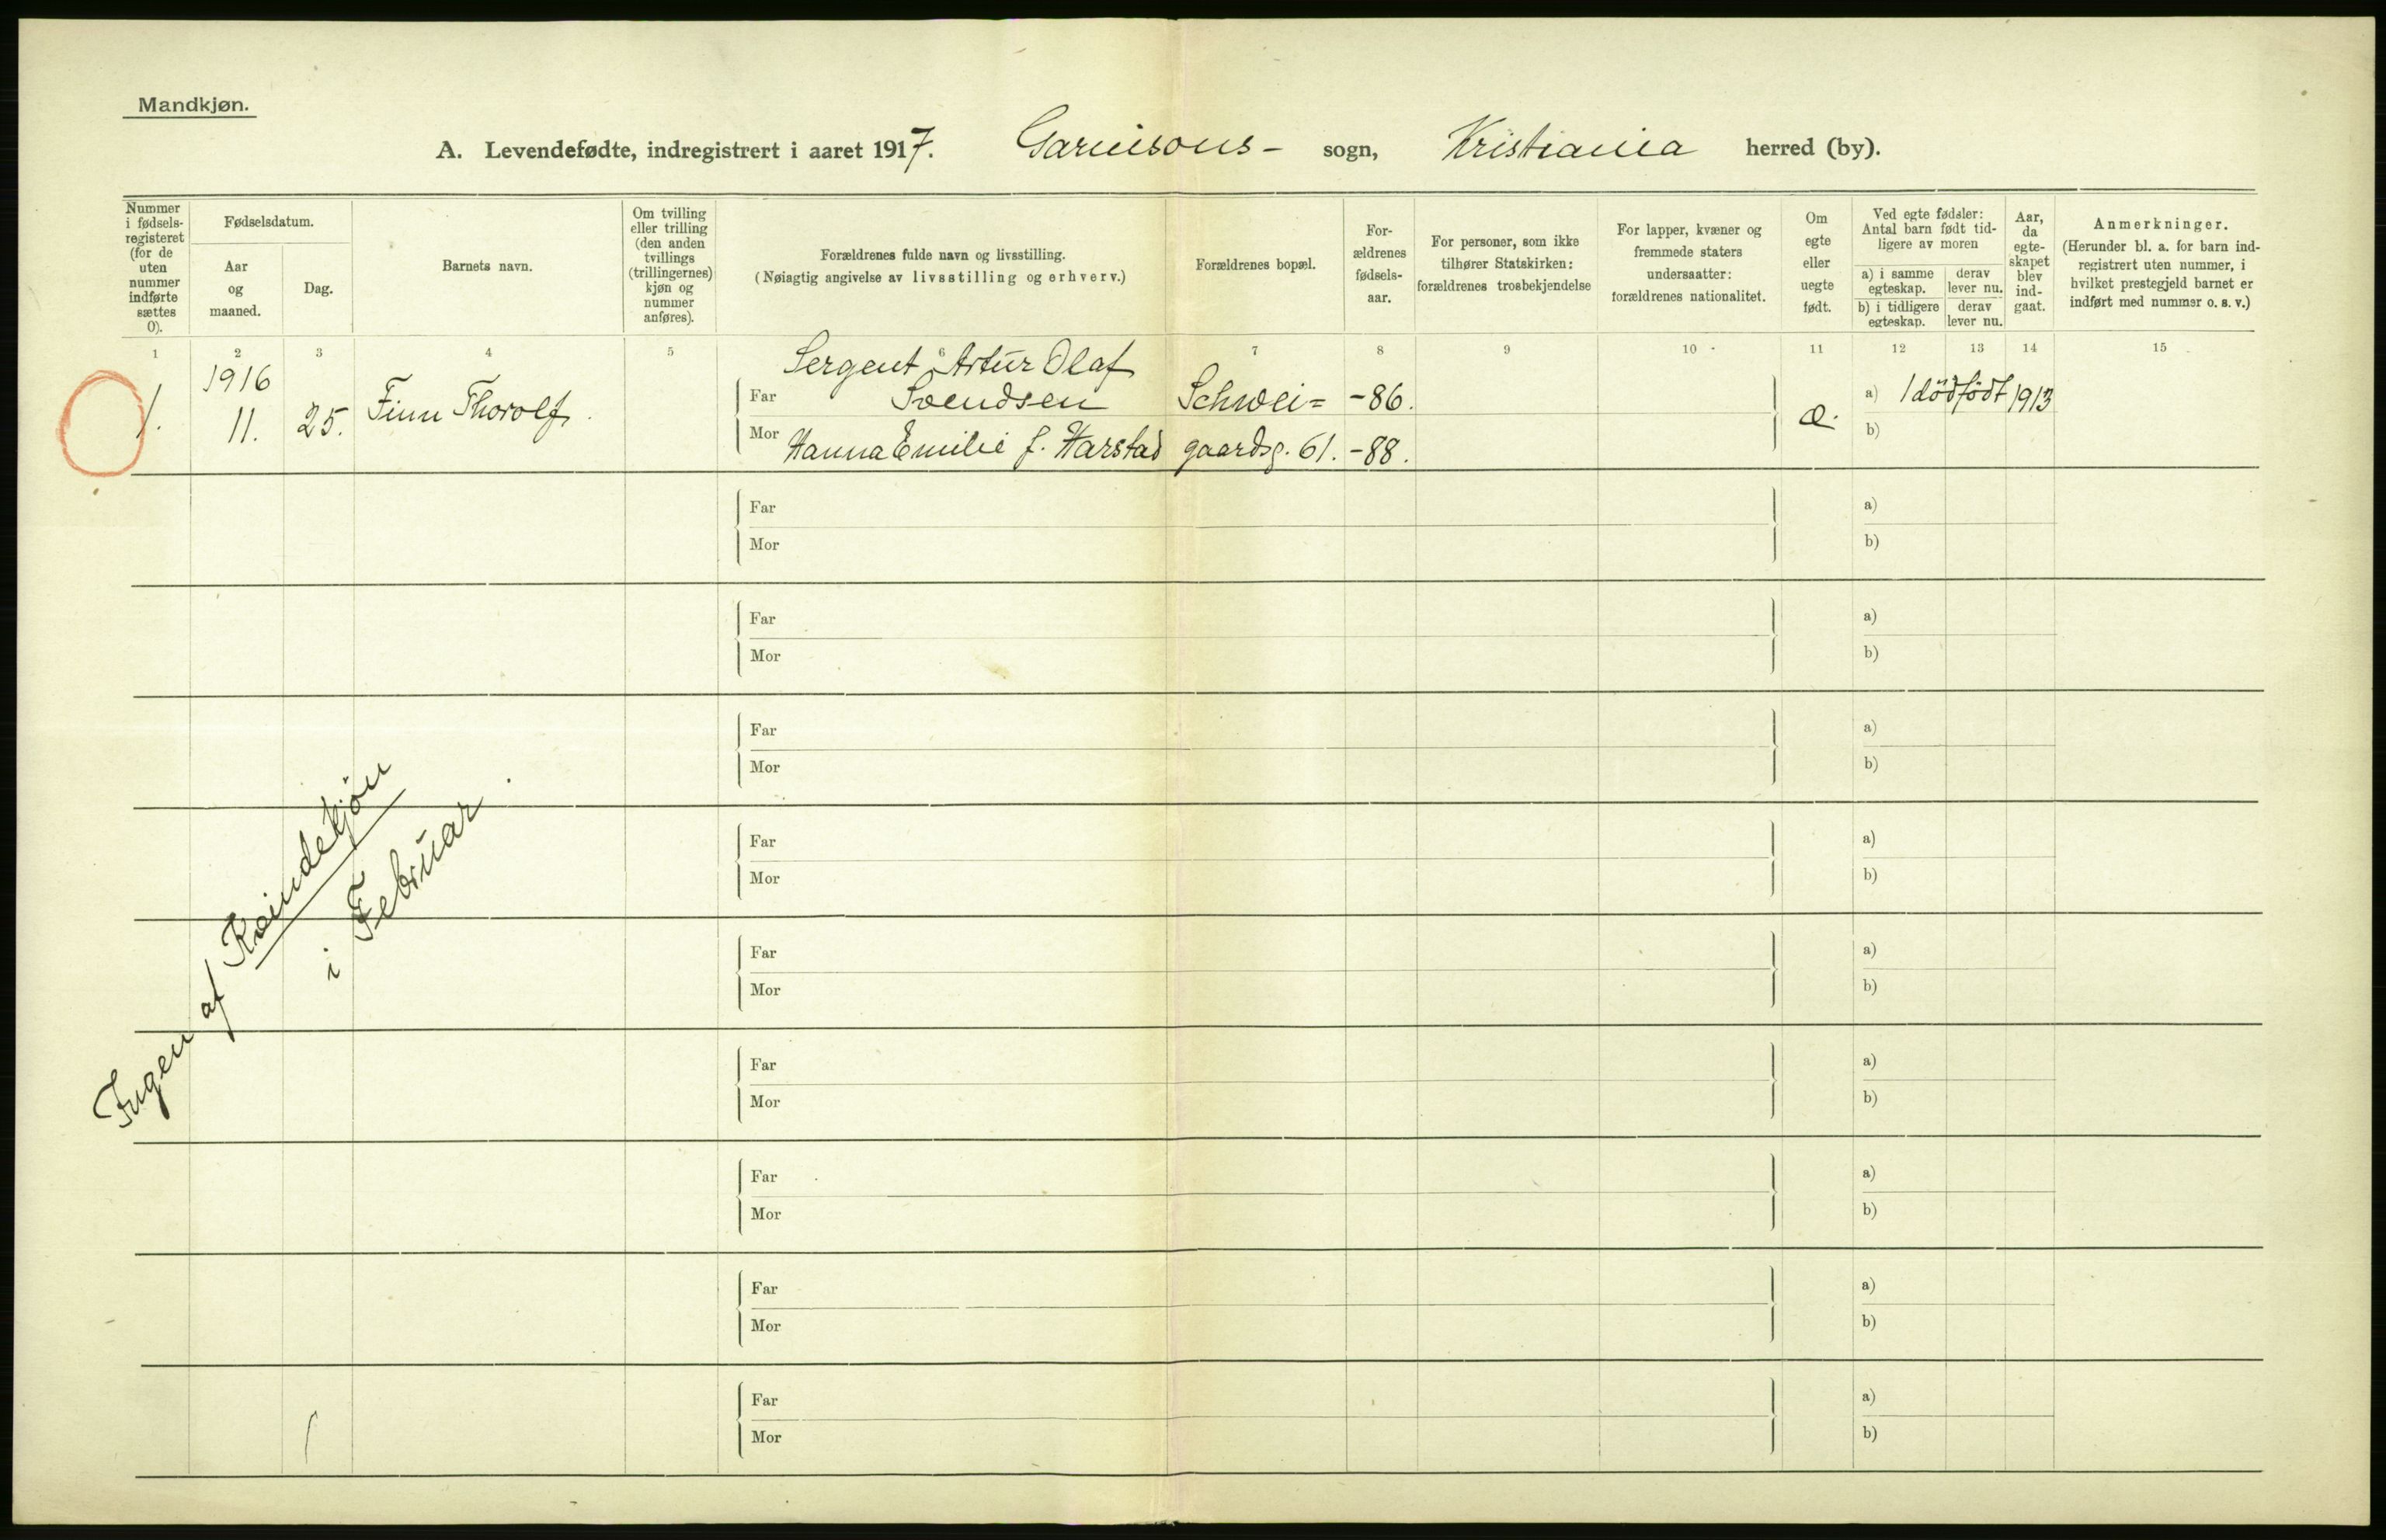 Mandkjøn.
A. Levendefødte, indregistrert i aaret 1917. Garnisons- sogn, Kristiania herred (by).
Nummer i fødsels-registeret (for de uten nummer indførte sættes 0).
Fødselsdatum.
Aar og maaned.
Dag.
Barnets navn.
Om tvilling eller trilling (den anden tvillings (trillingernes) kjøn og nummer anføres).
Forældrenes fulde navn og livsstilling.
(Nøiagtig angivelse av livsstilling og erhverv.)
Forældrenes bopæl.
For-ældrenes fødsels-aar.
For personer, som ikke tilhører Statskirken: forældrenes trosbekjendelse
For lapper, kvæner og fremmede staters undersaatter: forældrenes nationalitet.
Om egte eller uegte født.
Ved egte fødsler: Antal barn født tid-ligere av moren
a) i samme egteskap.
derav lever nu.
b) i tidligere egteskap.
derav lever nu.
Aar, da egte-skapet blev ind-gaat.
Anmerkninger.
(Herunder bl. a. for barn ind-registrert uten nummer, i hvilket prestegjeld barnet er indført med nummer o. s. v.)
1 2 3 4 5 6 7 8 9 10 11 12 13 14 15
1916 Sergent Artur Olaf
1. 11. 25. Finn Thorolf. Far Svendsen Schwei= -86. æ. a) 1 dödfödt 1913
Mor Hanna Emilie f. Harstad gaardsg. 61. -88. b)
Far a)
Mor b)
Far a)
Mor b)
Far a)
Mor b)
Far a)
Mor b)
Far a)
Mor b)
Far a)
Mor b)
Far a)
Mor b)
Far a)
Mor b)
Far a)
Mor b)
Ingen af Kvindekjön
i Februar.